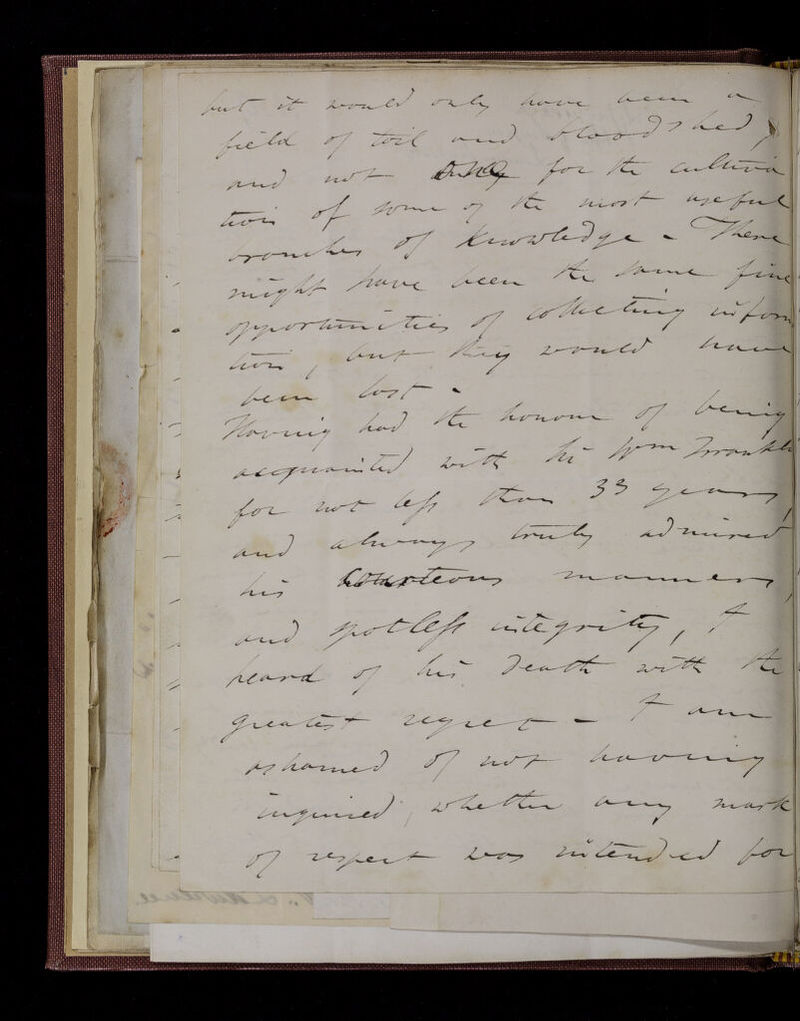 but it would only have been a
field of toil and bloodshed,
and not for the cultiva
tion of some of the most useful
branches of Knowledge - There
might have been the same fine
opportunities of collecting inform
tion, but they would have
been lost -
Having had the honour of being
acquainted with Sir Wm Frankli
for not less than 33 years,
and always truly admired
his courteous manners,
and spotless integrity, I
heard of his death with the
greatest regret - I am
ashamed of not having
inquired, whether any mark
of respect was intended for